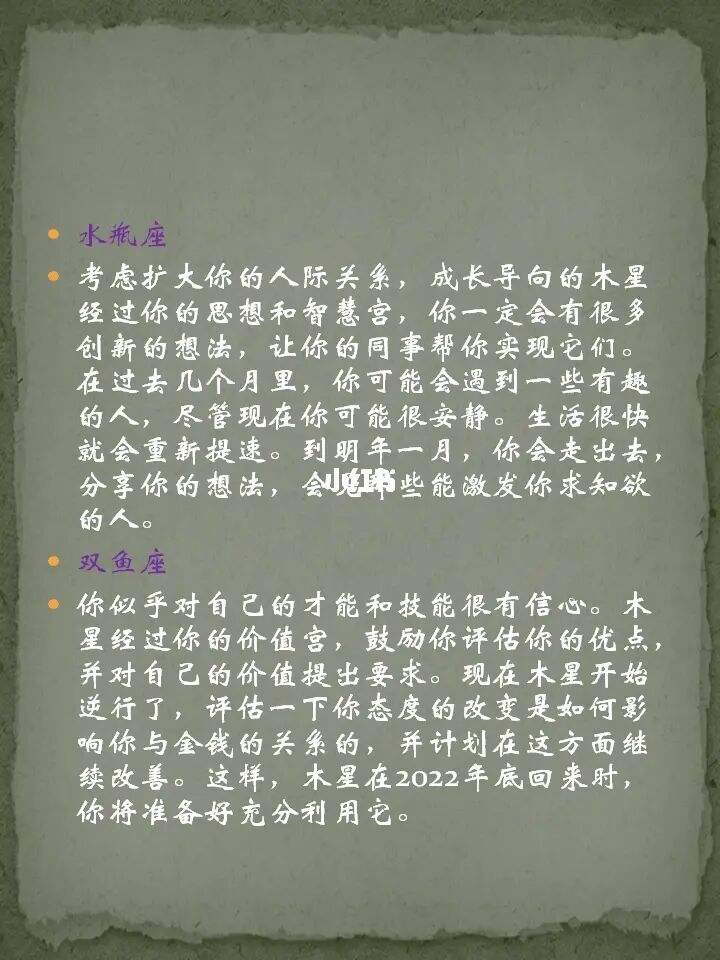 水瓶座
考虑扩大你的人际关系，成长导向的木星
经过你的思想和智慧宫，你一定会有很多
创新的想法，让你的同事帮你实现它们。
在过去几个月里，你可能会遇到一些有趣
的人，尽管现在你可能很安静。生活很快
就会重新提速。到明年一月，你会走出去，
分享你的想法，会见那些能激发你求知欲
的人。
双鱼座
你似乎对自己的才能和技能很有信心。木
星经过你的价值宫，鼓励你评估你的优点，
并对自己的价值提出要求。现在木星开始
逆行了，评估一下你态度的改变是如何影
响你与金钱的关系的，并计划在这方面继
续改善。这样，木星在2022年底回来时，
你将准备好充分利用它。